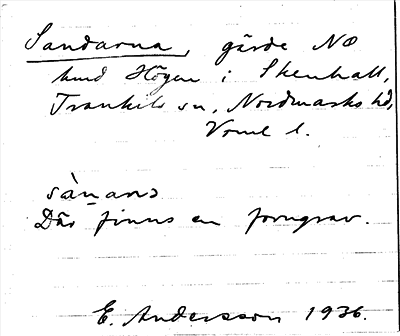 Sandarna, gärde NO
hmd Högen i Skenhall,
Trankils sn, Nordmarks hd,
Vrml l.
sànanə
Där finns en forngrav.
E. Andersson 1936.